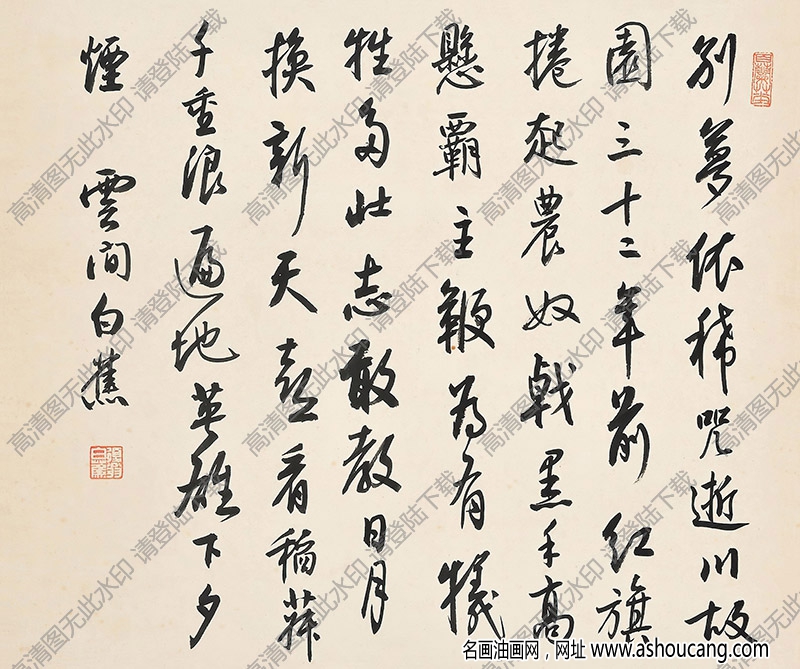 别夢依稀咒逝川故
園三十二年前红旗
捲起農奴戟黑手高
懸霸主鞭为有犧
牲多壮志敢教日月
换新天喜看稲菽
千重浪遍地英雄下夕
煙 雲间白蕉
高清图无此水印 请登陆下载
名画油画网，网址 www.ashoucang.com